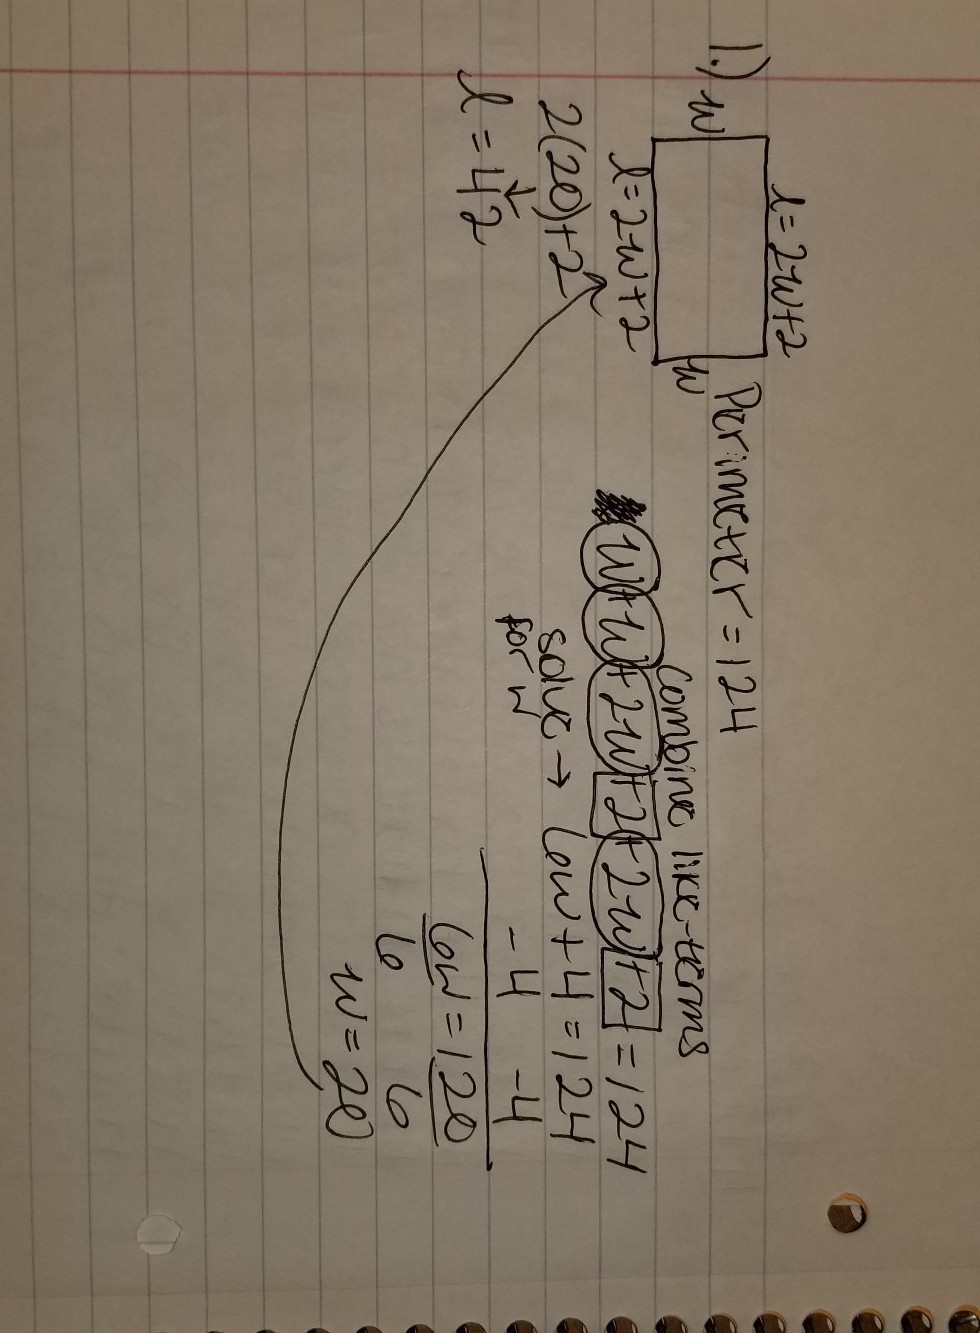 1.)
l = 2w+2
w
w
l = 2w+2
2(20)+2
↓
l = 42
Perimeter = 124
combine like-terms
w+w+2w+2+2w+2 = 124
solve → 6w+4 = 124
for w
-4 -4
6w = 120
6 6
w = 20